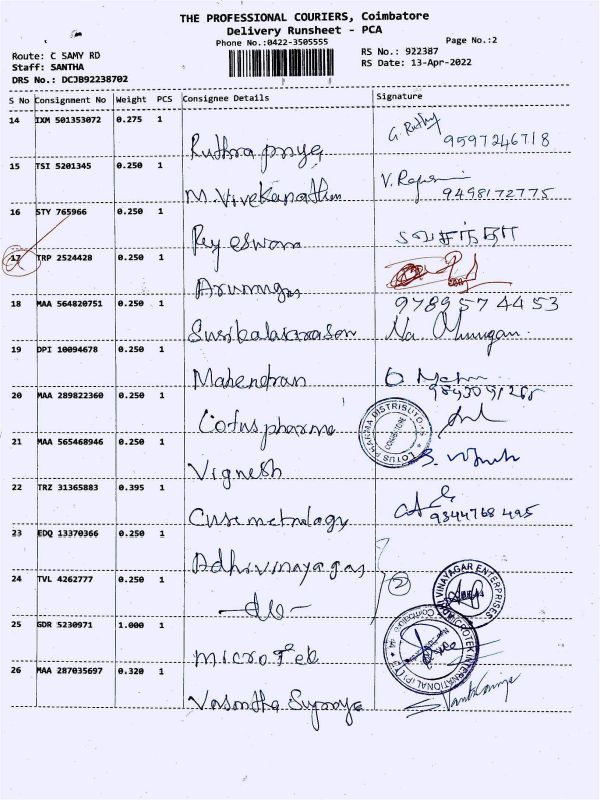 THE PROFESSIONAL COURIERS, Coimbatore
Delivery Runsheet - PCA
Phone No.:0422-3505555
Page No.:2
Route: C SAMY RD
RS No.: 922387
Staff: SANTHA
RS Date: 13-Apr-2022
DRS No.: DCJB92238702
S No Consignment No Weight PCS Consignee Details Signature
14 IXM 501353072 0.275 1
Ruthra priya G. Ruthy 9597246718
15 TSI 5201345 0.250 1
M. Vivekanathan V. 9498172775
16 STY 765966 0.250 1
வசந்தா
17 TRP 2524428 0.250 1
Arumugas
18 MAA 564820751 0.250 1
9789574453
19 DPI 10094678 0.250 1
Mahendran
20 MAA 289822360 0.250 1
Lotus pharma
LOTUS PHARMA DISTRIBUTORS
COIMBATORE
21 MAA 565468946 0.250 1
Vignesh
22 TRZ 31365883 0.395 1
Cure metrology 9344768495
23 EDQ 13370366 0.250 1
Adhivinayagas
24 TVL 4262777 0.250 1
2
VINAYAGAR ENTERPRISES
25 GDR 5230971 1.000 1
Microtek
MICROTEK INTERNATIONAL (P) LTD
26 MAA 287035697 0.320 1
Vasantha